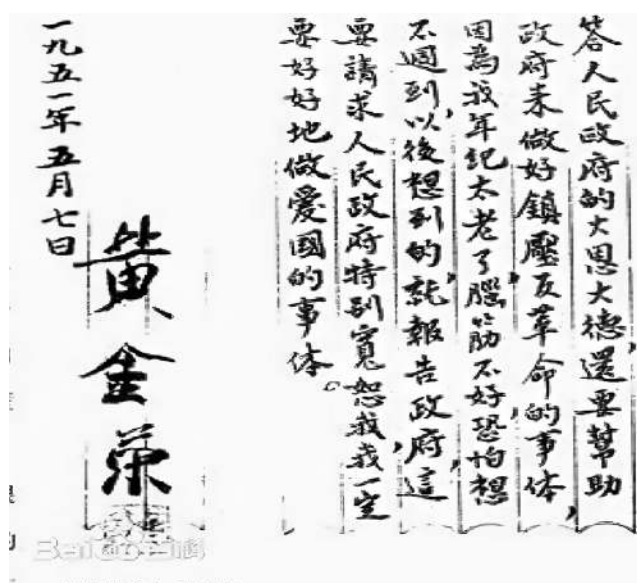 答人民政府的大恩大德，還要幫助
政府来做好鎮壓反革命的事体，
因為我年紀太老了，腦筋不好，恐怕想
不週到，以後想到的，就報告政府，這
要請求人民政府特别寬恕我，我一定
要好好地做愛國的事体。
一九五一年五月七日
黃金荣
Bai 百科